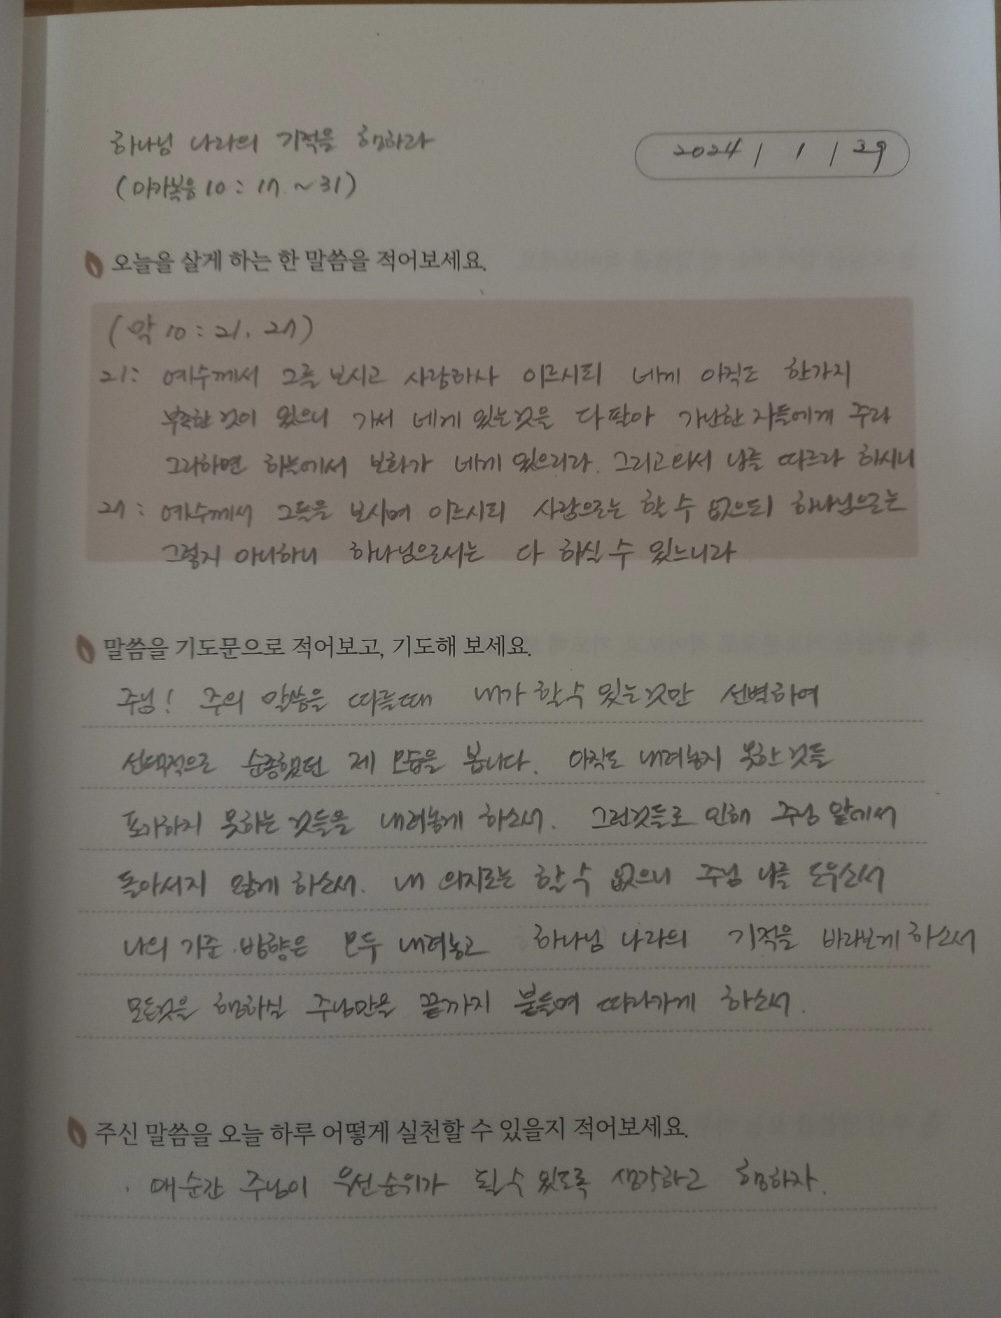 하나님 나라의 기적을 행하라
2024 / 1 / 29
(마가복음 10 : 17 ~ 31)
오늘을 살게 하는 한 말씀을 적어보세요.
(막 10 : 21, 27)
21 : 예수께서 그를 보시고 사랑하사 이르시되 네게 아직도 한가지
부족한 것이 있으니 가서 네게 있는것을 다 팔아 가난한 자들에게 주라
그리하면 하늘에서 보화가 네게 있으리라. 그리고 와서 나를 따르라 하시니
27 : 예수께서 그들을 보시며 이르시되 사람으로는 할 수 없으되 하나님으로는
그렇지 아니하니 하나님으로서는 다 하실 수 있느니라
말씀을 기도문으로 적어보고, 기도해 보세요.
주님! 주의 말씀을 따를때 내가 할 수 있는것만 선별하여
선택적으로 순종했던 제 모습을 봅니다. 아직도 내려놓지 못한 것들
포기하지 못하는 것들을 내려놓게 하소서. 그런것들로 인해 주님 앞에서
돌아서지 않게 하소서. 내 의지로는 할 수 없으니 주님 나를 도우소서
나의 기준·방향은 모두 내려놓고 하나님 나라의 기적을 바라보게 하소서
모든것을 행하실 주님만을 끝까지 붙들며 따라가게 하소서.
주신 말씀을 오늘 하루 어떻게 실천할 수 있을지 적어보세요.
· 매순간 주님이 우선순위가 될 수 있도록 생각하고 행하자.